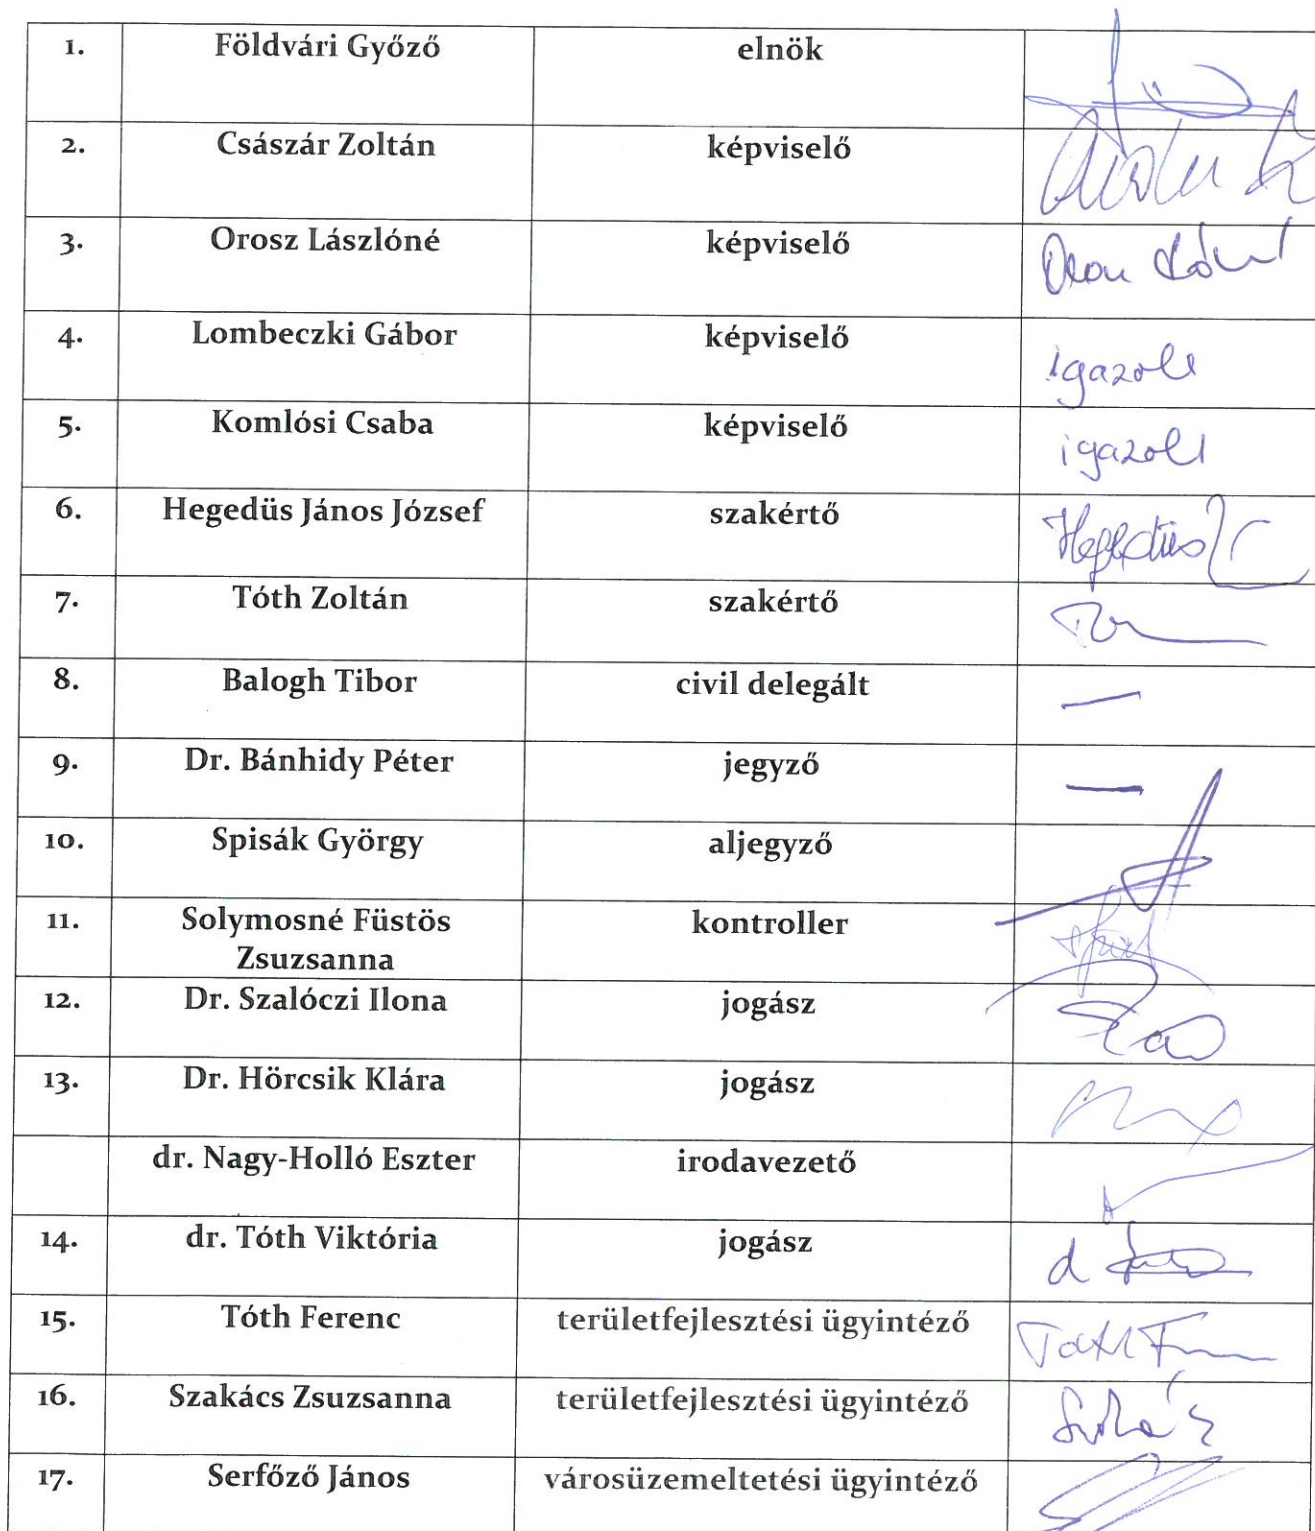 1. Földvári Győző elnök
2. Császár Zoltán képviselő
3. Orosz Lászlóné képviselő
4. Lombeczki Gábor képviselő igazolt
5. Komlósi Csaba képviselő igazolt
6. Hegedüs János József szakértő Hegedüs
7. Tóth Zoltán szakértő
8. Balogh Tibor civil delegált —
9. Dr. Bánhidy Péter jegyző —
10. Spisák György aljegyző
11. Solymosné Füstös kontroller
Zsuzsanna
12. Dr. Szalóczi Ilona jogász
13. Dr. Hörcsik Klára jogász
dr. Nagy-Holló Eszter irodavezető
14. dr. Tóth Viktória jogász
15. Tóth Ferenc területfejlesztési ügyintéző Tóth F
16. Szakács Zsuzsanna területfejlesztési ügyintéző
17. Serfőző János városüzemeltetési ügyintéző